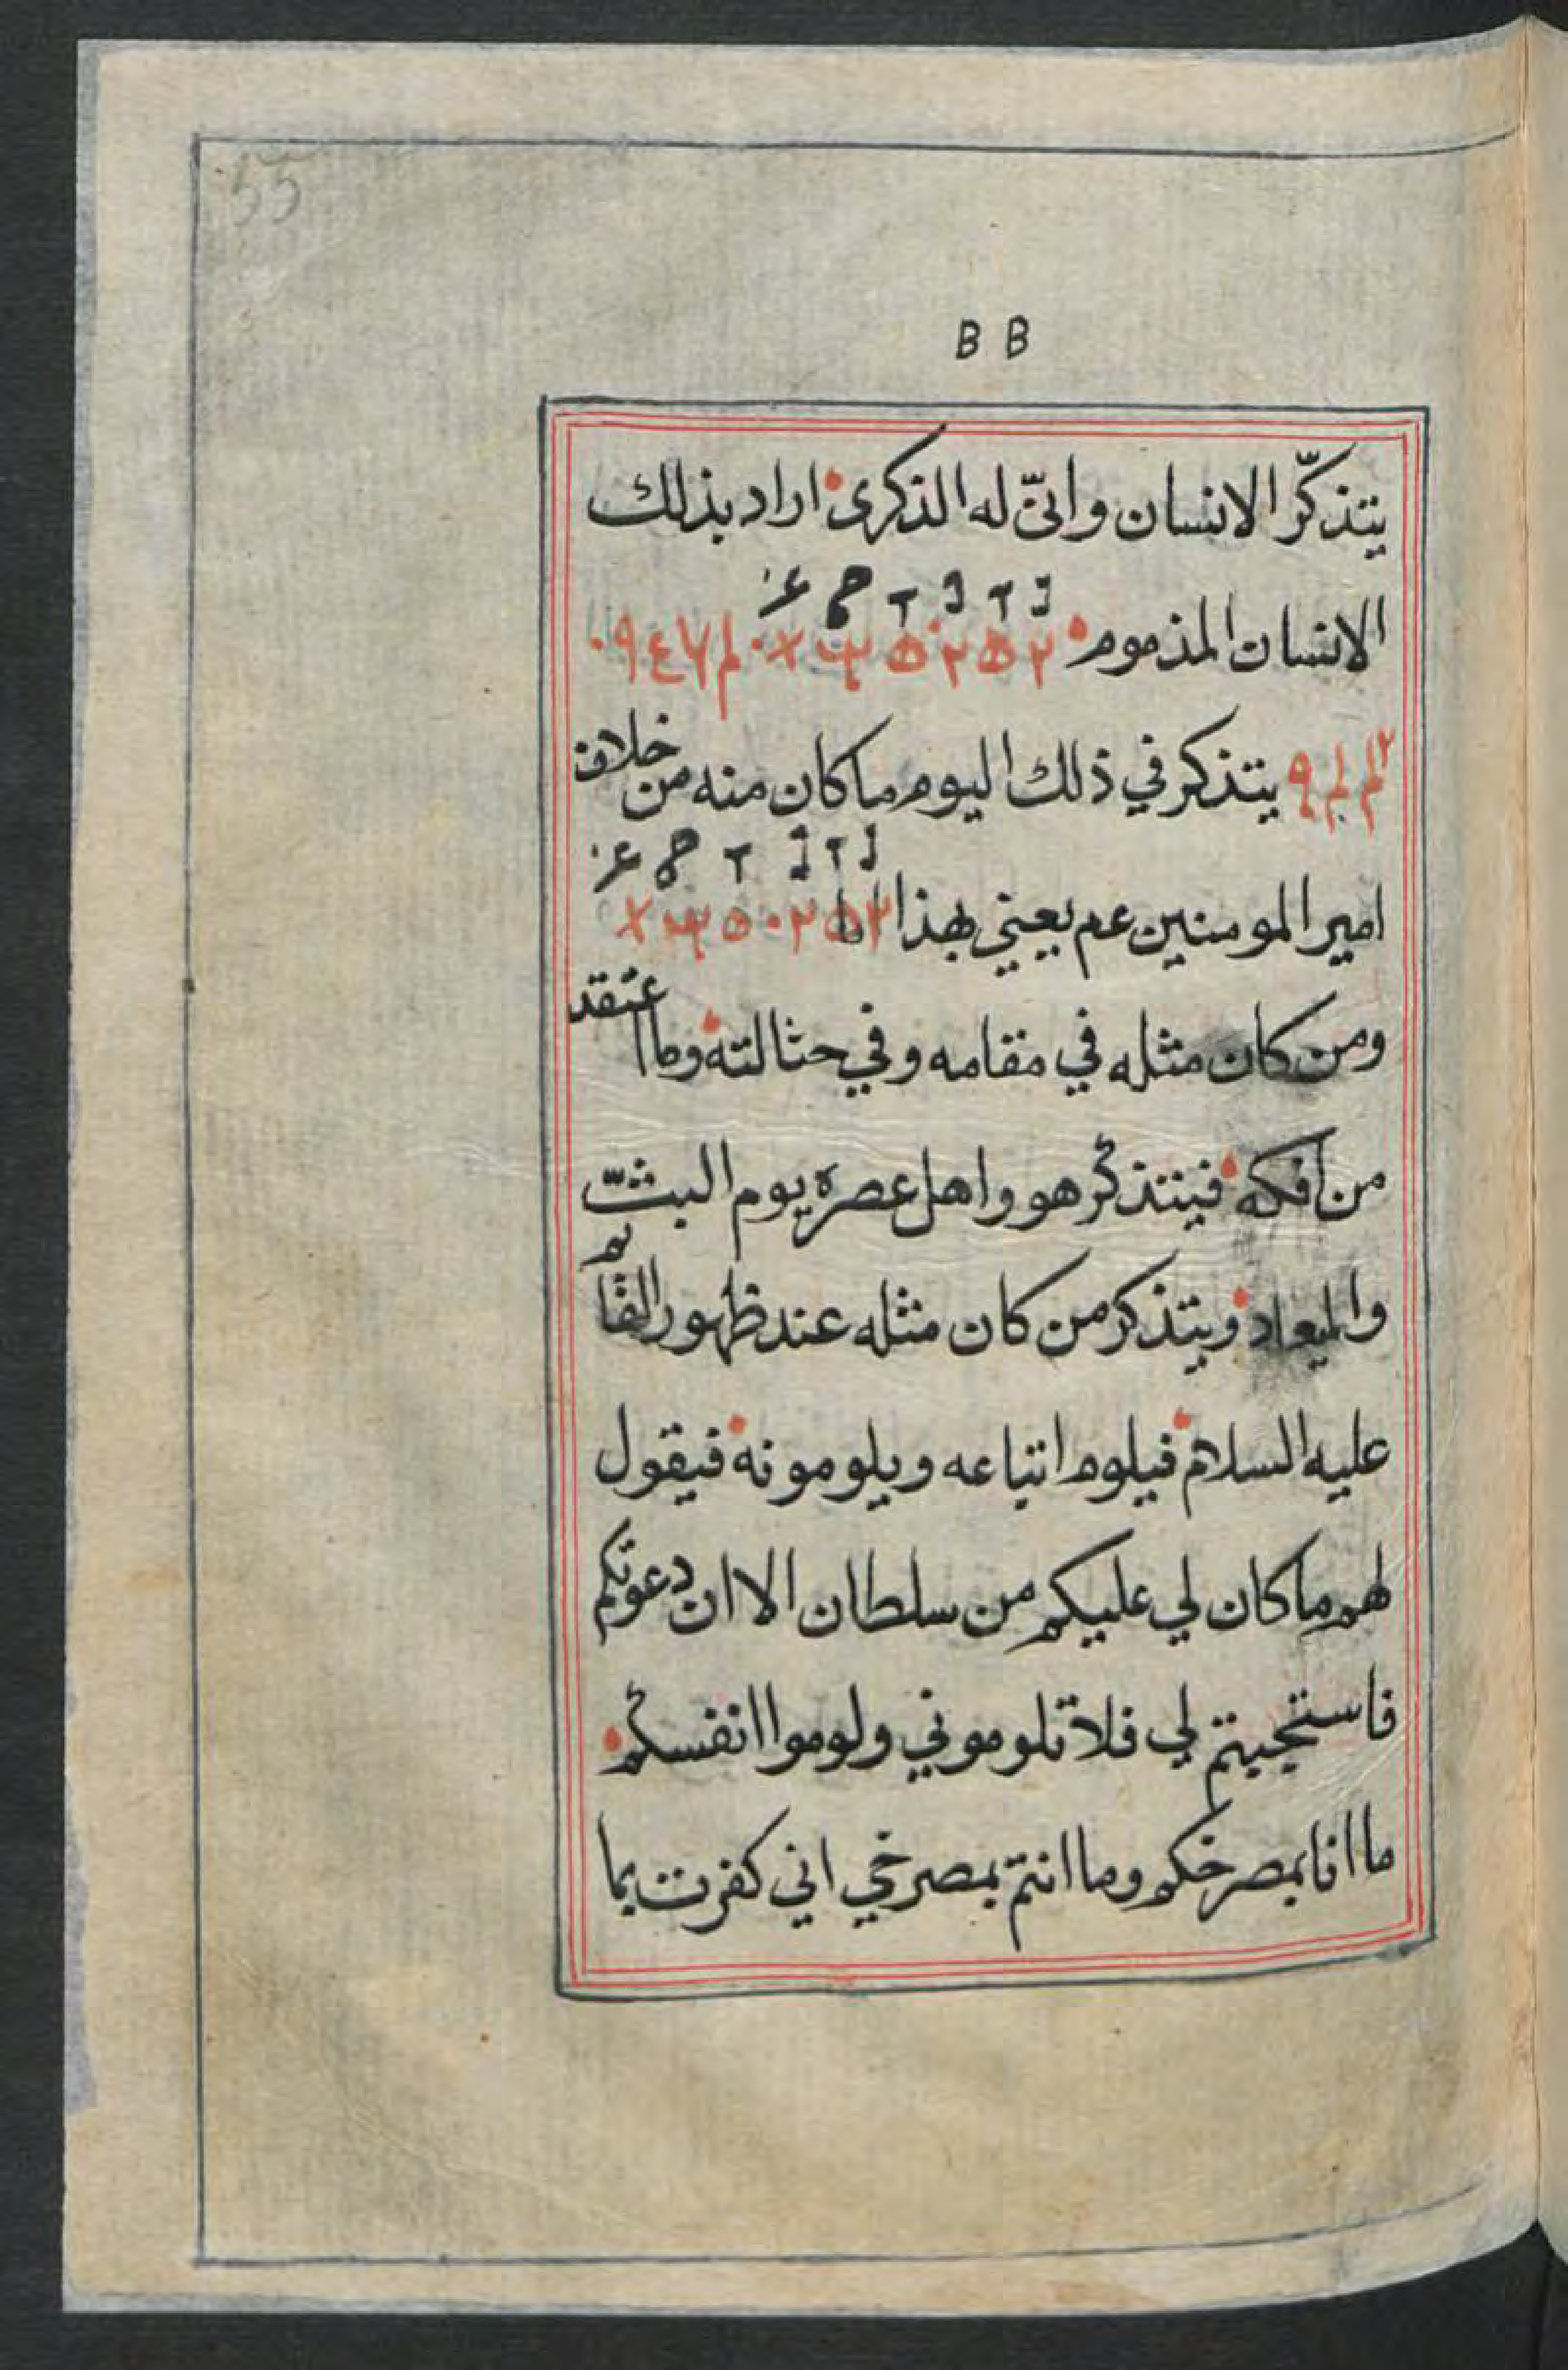 55
B B
يتذكّر الانسان وانىّ له الذكرى اراد بذلك
الانسان المذموم
يتذكر في ذلك اليوم ما كان منه من خلاف
امير المومنين عم يعني بهذا
ومن كان مثله في مقامه وفي حثالته وما اعتقد
من افكه فيتذكر هو واهل عصره يوم البثّ
والميعاد ويتذكر من كان مثله عند ظهور القائم
عليه السلام فيلوم اتباعه ويلومونه فيقول
لهم ما كان لي عليكم من سلطان الا ان دعوتكم
فاستجبتم لي فلا تلوموني ولوموا انفسكم
ما انا بمصرخكم وما انتم بمصرخي اني كفرت بما